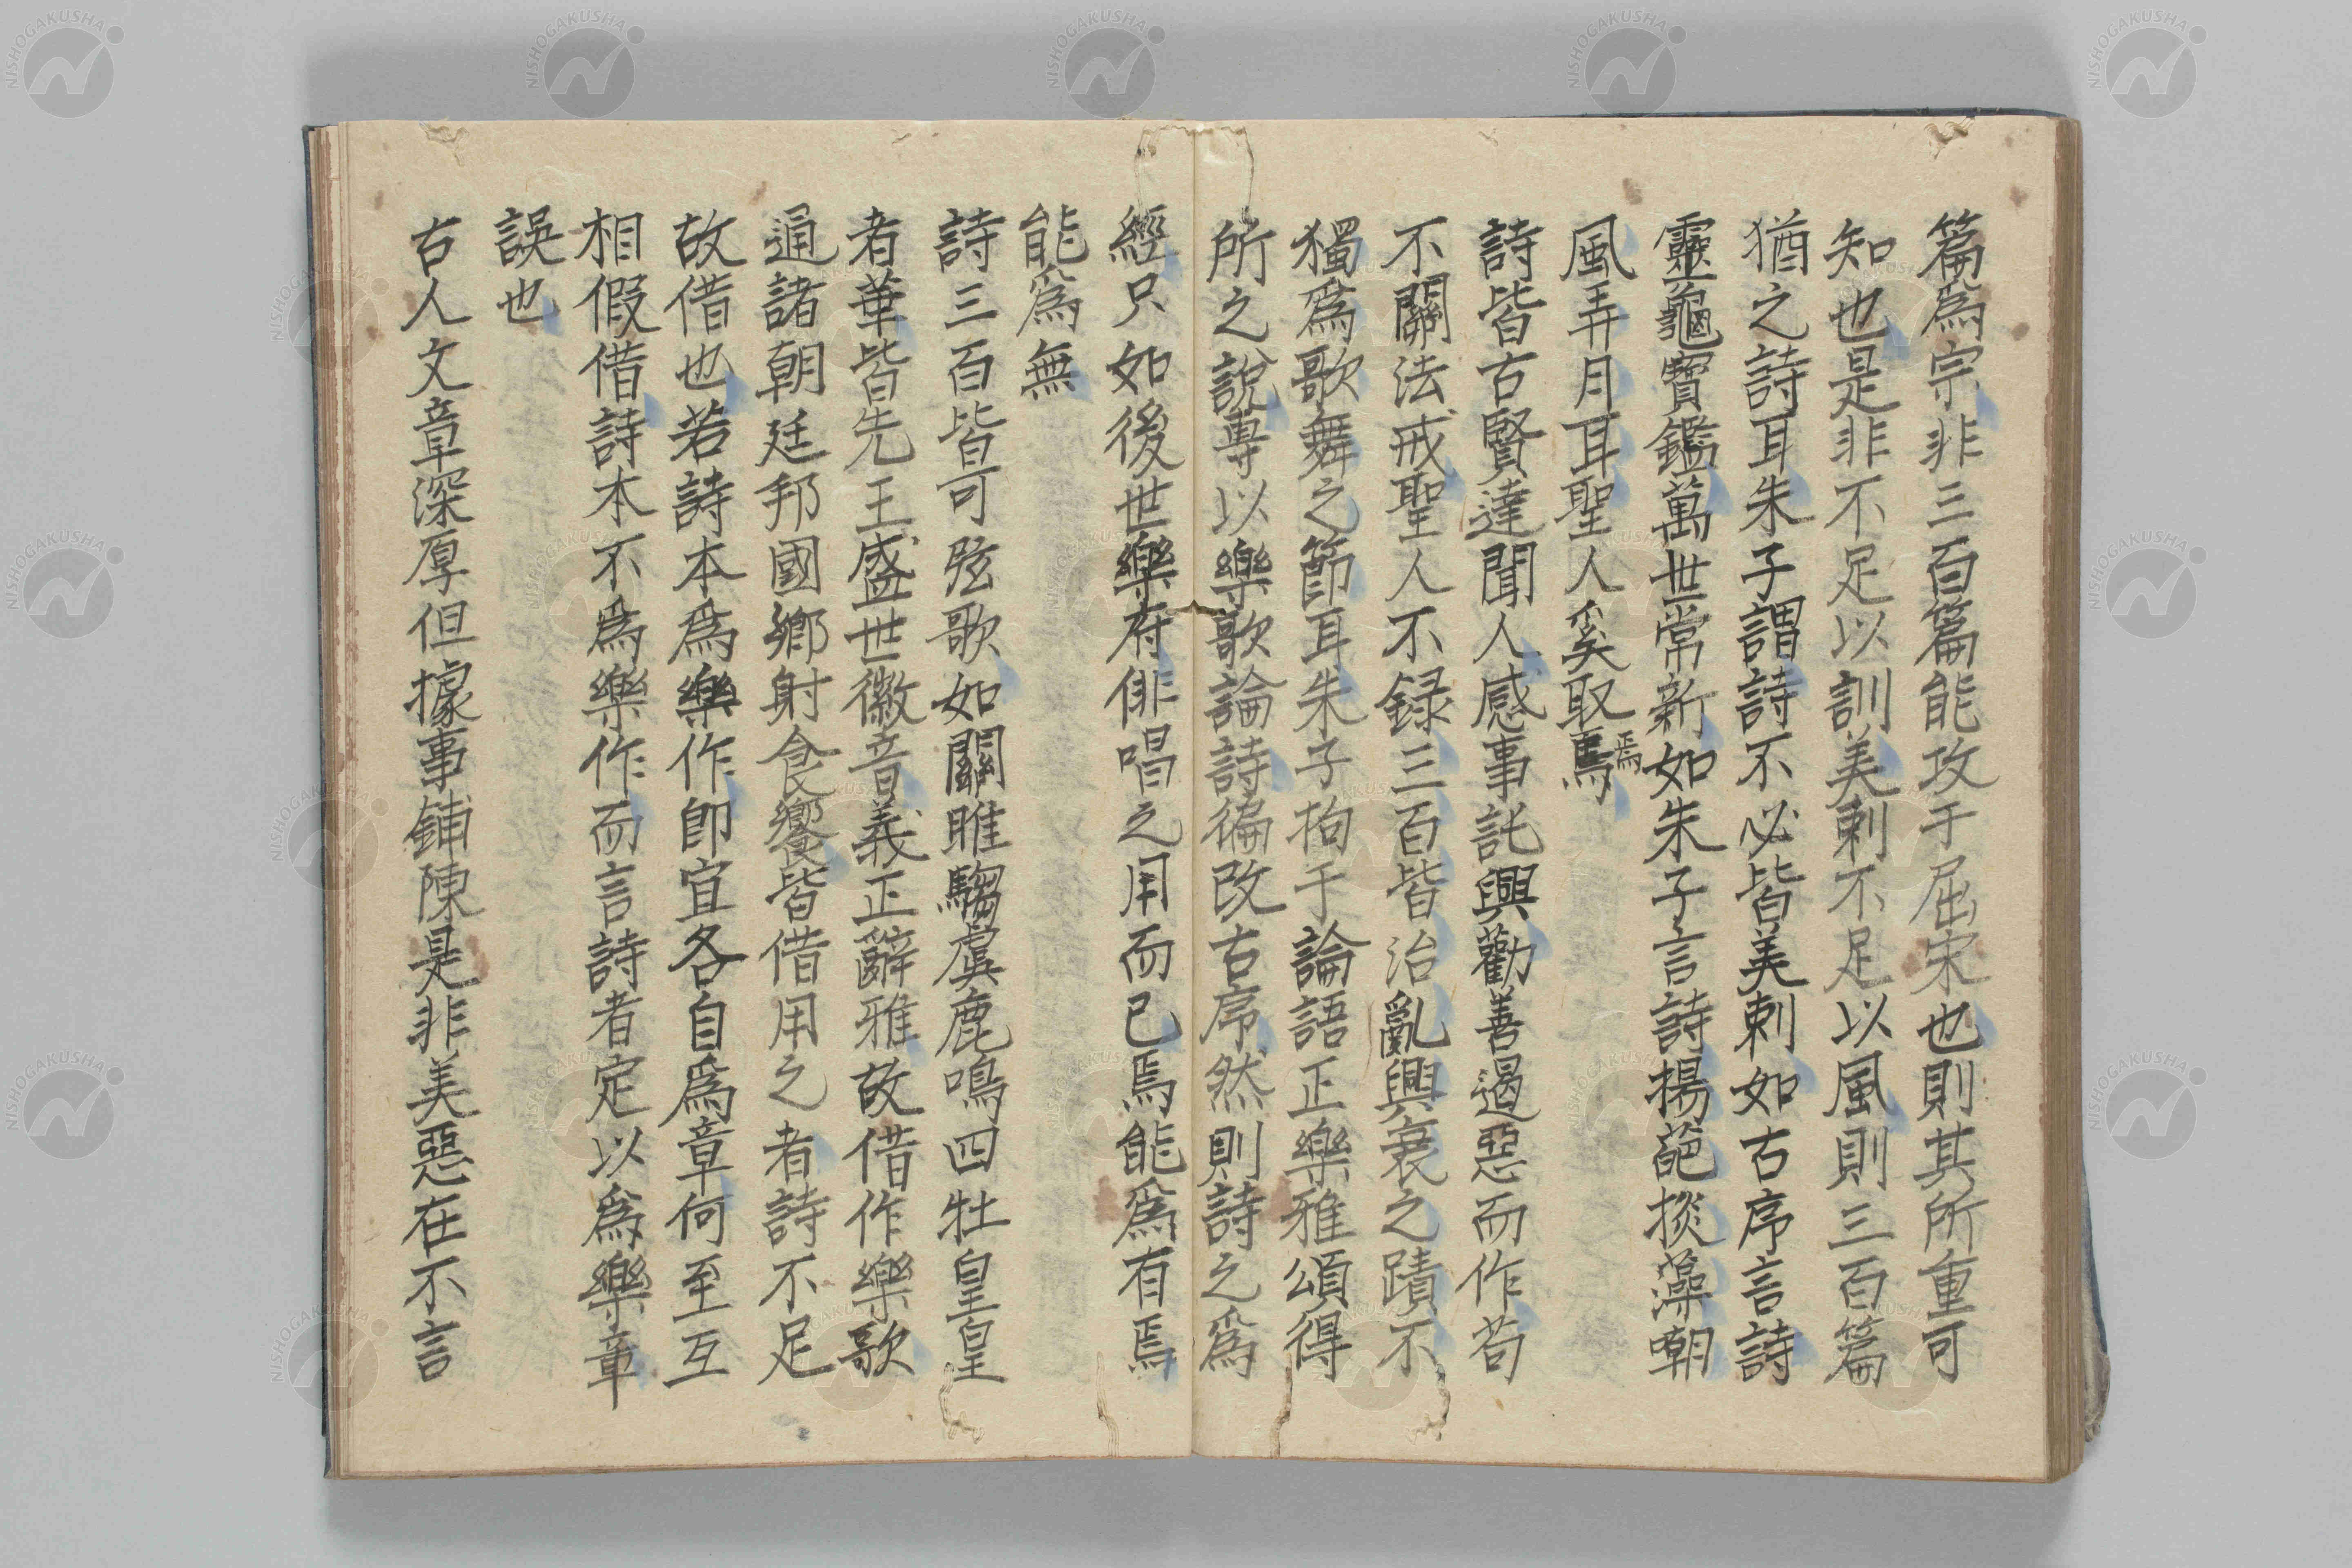 篇爲宗非三百篇能攻于屈宋也則其所重可
知也是非不足以訓美刺不足以風則三百篇
猶之詩耳朱子謂詩不必皆美刺如古序言詩
靈龜寶鑑萬世常新如朱子言詩揚葩掞藻嘲
風弄月耳聖人奚取焉
焉
詩皆古賢達聞人感事託興勸善遏惡而作苟
不關法戒聖人不録三百皆治亂興衰之蹟不
獨爲歌舞之節耳朱子拘于論語正樂雅頌得
所之說專以樂歌論詩徧改古序然則詩之爲
經只如後世樂府俳唱之用而已焉能爲有焉
能爲無
詩三百皆可弦歌如關雎騶虞鹿鳴四牡皇皇
者華皆先王盛世徽音義正辭雅故借作樂歌
通諸朝廷邦國鄉射食饗皆借用之者詩不足
故借也若詩本爲樂作卽宜各自爲章何至互
相假借詩本不爲樂作而言詩者定以爲樂章
誤也
古人文章深厚但據事鋪陳是非美惡在不言
NISHOGAKUSHA